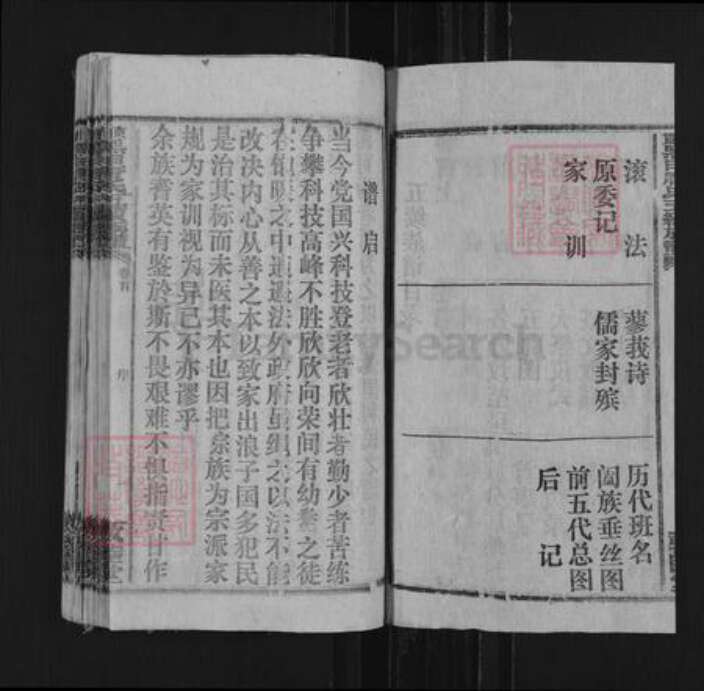 滚法
原委记
家训
蓼莪诗
儒家封殡
历代班名
阖族垂丝图
前五代总图
后记
谱启
当今党国兴科技登老者欣壮者勤少者苦练
争攀科技高峰不胜欣欣向荣间有幼辈之徒
在饱暖之中逍遥法外政府虽绳之以法不能
改决内心从善之本以致家出浪子国多犯民
是治其标而未医其本也因把宗族为宗派家
规为家训视为异己不亦谬乎
余族耆英有鉴於斯不畏艰难不惧指责甘作
卷首
序
Search